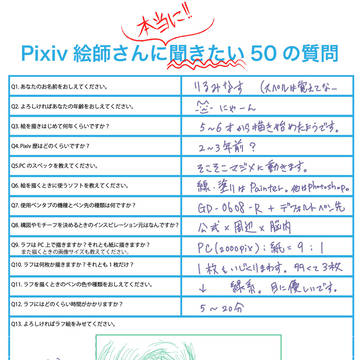 本当に!!
Pixiv 絵師さんに聞きたい 50 の質問
Q1. あなたのお名前をおしえてください。
りるみなす (スペルは覚えてな～
Q2. よろしければあなたの年齢をおしえてください。
にゃーん
Q3. 絵を描きはじめて何年くらいですか？
5～6才から描き始めたようです。
Q4. Pixiv 歴はどのくらいですか？
2～3年前？
Q5.PC のスペックを教えてください。
そこそこマジメに動きます。
Q6. 絵を描くときに使うソフトを教えてください。
線・塗りは Painter。他はPhotoshop。
Q7. 使用ペンタブの機種とペン先の種類は何ですか？
GD-0608-R + デフォルトペン先
Q8. 構図やモチーフを決めるときのインスピレーション元はなんですか？
公式 × 周辺 × 脳内
Q9. ラフは PC 上で描きますか？それとも紙に描きますか？
また描くときの画像サイズも教えてください。
PC(2000pix) : 紙 = 9 : 1
Q10. ラフは何枚か描きますか？それとも 1 枚だけ？
1枚をいじくりまわす。多くて3枚
Q11. ラフを描くときのペンの色や種類をおしえてください。
↓ 緑系。目に優しいです。
Q12. ラフにはどのくらい時間がかかりますか？
5～20分
Q13. よろしければラフ絵をみせてください。